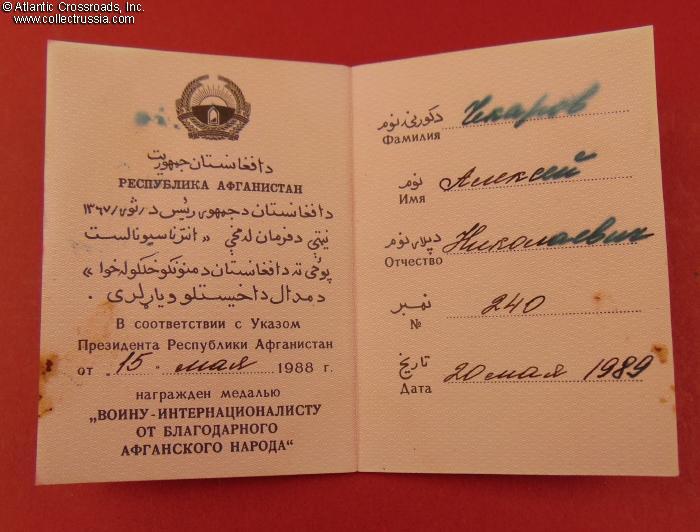 © Atlantic Crossroads, Inc.
www.collectrussia.com
دافغانستان جمهوریت
РЕСПУБЛИКА АФГАНИСТАН
دافغانستان دجمهوری رئیس د / ثور / ۱۳۶۷
نیټی دفرمان له مخی « انترناسیونالست
پوځی ته دافغانستان دمننوکوخکو له خوا »
دمدال داخیستلو ویاړلری .
В соответствии с Указом
Президента Республики Афганистан
от " 15 " мая 1988 г.
награжден медалью
„ВОИНУ-ИНТЕРНАЦИОНАЛИСТУ
ОТ БЛАГОДАРНОГО
АФГАНСКОГО НАРОДА“
دکورنی نوم
Фамилия
نوم Алексей
Имя
دپلار نوم Николаевич
Отчество
نمبر 240
№
تاریخ 20 мая 1989
Дата